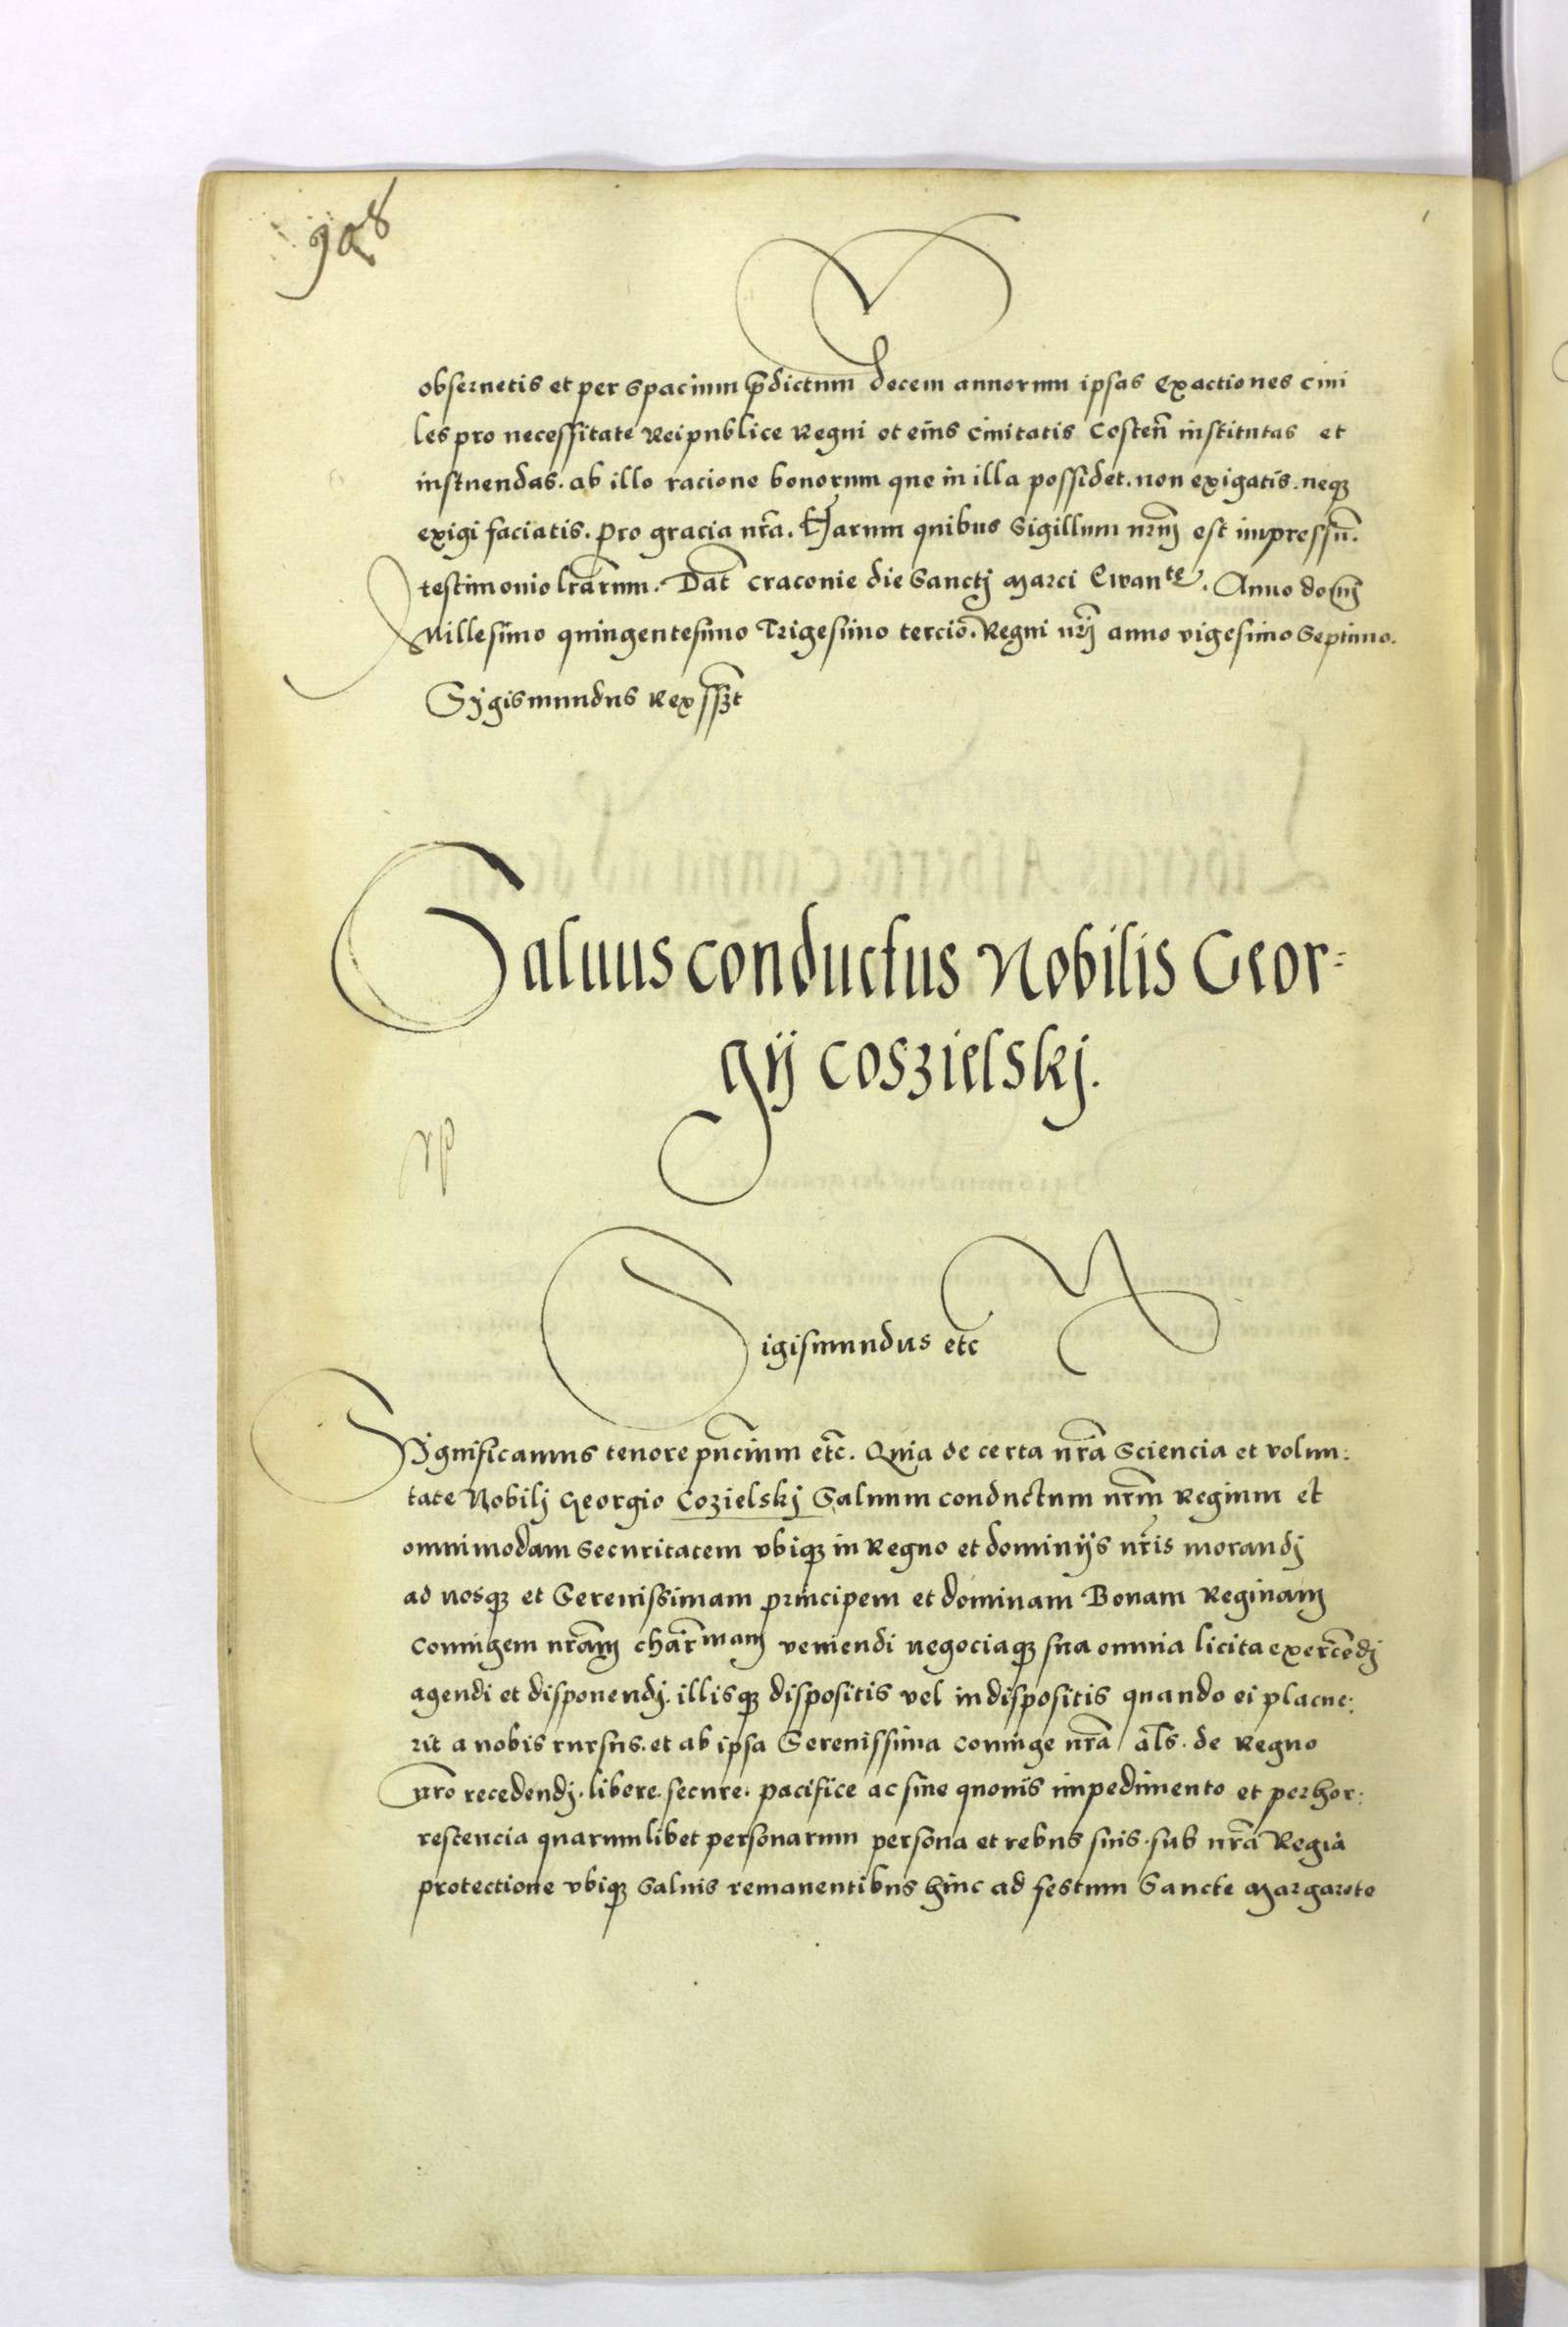 908
obseruetis et per spacium p̄dictum decem annorum ipsas exactiones ciui
les pro necessitate Reipublice Regni et eius Ciuitatis Costeñ institutas et
instuendas. ab illo racione bonorum que in illa possidet. non exigatis. neqꝫ
exigi faciatis. Pro gracia nr̄a. Harum quibus Sigillum nr̄m est impressū.
testimonio lrārum. Dat̄ Craconie die Sanctj Marci Ewanᵗᵉ. Anno domj̄
Millesimo quingentesimo Trigesimo tercio. Regni nr̄j anno vigesimo Septimo.
Sygismundus Rex sszt
Saluus conductus Nobilis Geor=
gij Coszielskj.
rp
Sigismundus etc
Significamus tenore pn̄cium etc̄. Quia de certa nr̄a Sciencia et volun:
tate Nobilj Georgio Cozielskj Saluum conductum nr̄m Regium et
omnimodam Securitatem vbiqꝫ in Regno et dominijs nr̄is morandj
ad nosqꝫ et Serenissimam principem et dominam Bonam Reginam
Coniugem nr̄am char̄mam veniendi negociaqꝫ sua omnia licita exercēdj
agendi et disponendj. illisqꝫ dispositis vel indispositis quando ei placue:
rit a nobis rursus. et ab ipsa Serenissima coniuge nr̄a / al̄s. de Regno
nr̄o recedendj. libere. secure. pacifice ac sine quouis impedimento et perhor:
rescencia quarumlibet personarum persona et rebus suis. sub nr̄a Regia
protectione vbiqꝫ Saluis remanentibus hinc ad festum Sancte Margarete